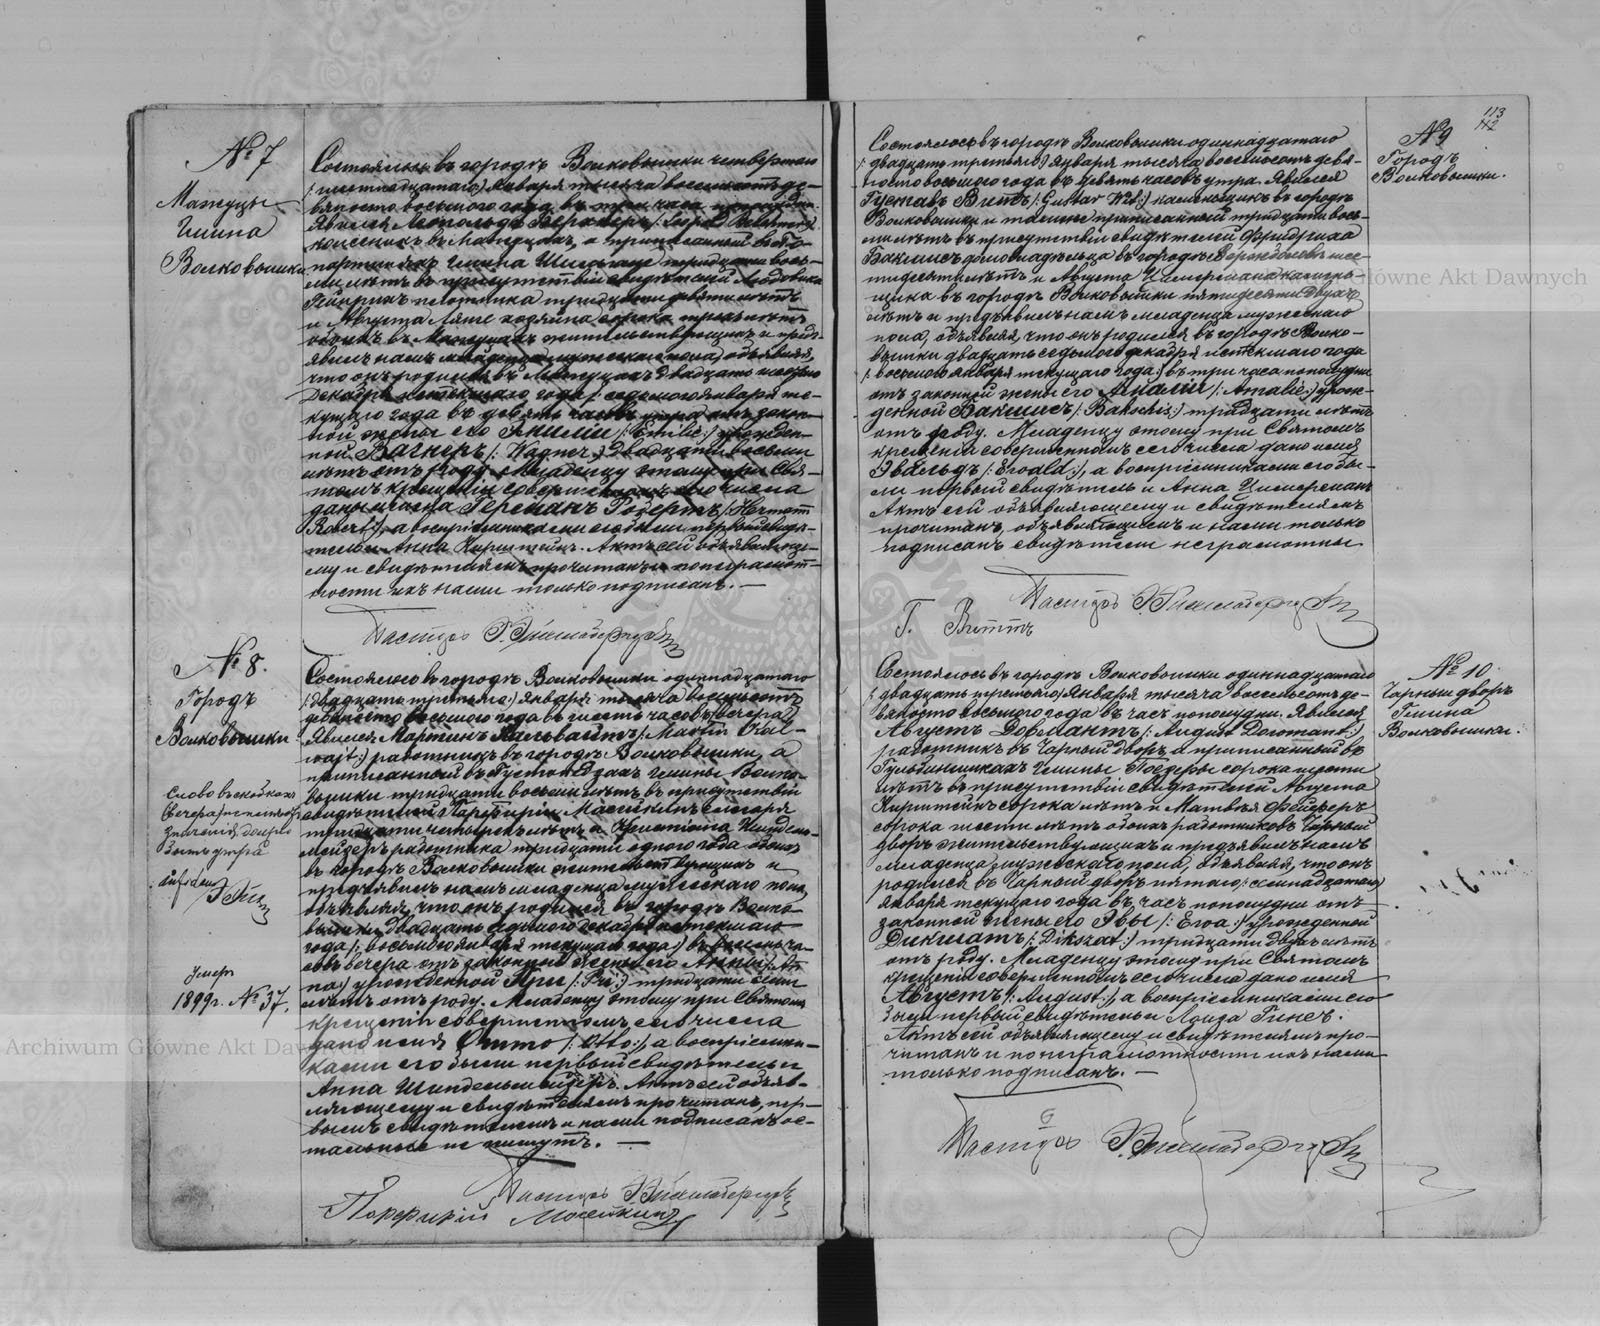 № 7
Матуцы
Гмина
Волковышки
Состоялось въ городѣ Волковышки четвертаго
/:шестнадцатаго:/ Января тысяча восемьсотъ де-
вяносто восьмого года въ три часа пополудни.
Явился Леопольдъ
колесникъ въ Матуцахъ, а приписанный въ
гмина тридцати вось-
ми лѣтъ въ присутствіи свидѣтелей Людовика
плотника тридцати девяти лѣтъ
и Августа хозяина сорока трехъ лѣтъ
обоихъ въ Матуцахъ жительствующихъ и предъ-
явилъ намъ младенца мужескаго пола, объявляя,
что онъ родился въ Матуцахъ двадцать шестого
Декабря истекшаго года /: седьмого января те-
кущаго года въ девять часовъ утра отъ закон-
ной жены его Эмиліи /: Emilie :/ урожден-
ной Вагнеръ /: Wagner :/ двадцати восьми
лѣтъ отъ роду. Младенцу этому при Свя-
томъ крещеніи совершенномъ сего числа
даны имена Германъ Робертъ /: Hermann
Robert :/, а воспріемниками его были первый свидѣ-
тель и Анна Кирштейнъ. Актъ сей объявляюще-
му и свидѣтелямъ прочитанъ и по неграмот-
ности ихъ нами только подписанъ. —
Пасторъ
№ 8.
Городъ
Волковышки
Слово въ скобкахъ
Умеръ
1899 г. № 37.
Состоялось въ городѣ Волковышки одиннадцатаго
/: двадцать третьяго :/ Января тысяча восемьсотъ
девяносто восьмого года въ шесть часовъ вечера
Явился Мартинъ Кальвайтъ /: Martin Kal-
wajt :/ работникъ въ городѣ Волковышки, а
приписанный въ гмины Волко-
вышки тридцати восьми лѣтъ въ присутствіи
свидѣтелей Порфирія слесаря
тридцати четырехъ лѣтъ и Христіана Шиндель-
мейзеръ работника тридцати одного года обоихъ
въ городѣ Волковышки жительствующихъ и
предъявилъ намъ младенца мужескаго пола,
объявляя, что онъ родился въ городѣ Волко-
вышки двадцать седьмого декабря истекшаго
года /: восьмого января текущаго года :/ въ восемь ча-
совъ вечера отъ законной жены его Анны /: An-
na :/ урожденной При /: Pri :/ тридцати семи
лѣтъ отъ роду. Младенцу этому при Святомъ
крещеніи совершенномъ сего числа
дано имя Отто /: Otto :/, а воспріемни-
ками его были первый свидѣтель и
Анна Шиндельмейзеръ. Актъ сей объяв-
ляющему и свидѣтелямъ прочитанъ, пер-
вымъ свидѣтелемъ и нами подписанъ ос-
тальные не пишутъ. —
Пасторъ
Порфирій
113
112
№ 9
Городъ
Волковышки.
Состоялось въ городѣ Волковышки одиннадцатаго
/: двадцать третьяго :/ Января тысяча восемьсотъ девя-
носто восьмого года въ девять часовъ утра. Явился
Густавъ Виттъ /: Gustav Wit :/ каменьщикъ въ городѣ
Волковышки и тамже приписанный тридцати вось-
ми лѣтъ въ присутствіи свидѣтелей Фридриха
Бакшисъ домовладѣльца въ городѣ шес-
тидесяти лѣтъ и Августа Цимермана каменьщика-
щика въ городѣ Волковышки пятидесяти двухъ
лѣтъ и предъявилъ намъ младенца мужескаго
пола, объявляя, что онъ родился въ городѣ Волко-
вышки двадцать седьмого декабря истекшаго года
/: восьмого января текущаго года :/ въ три часа пополудни
отъ законной жены его Амаліи /: Amalie :/ урож-
денной Бакшисъ /: Bakschis :/ тридцати лѣтъ
отъ роду. Младенцу этому при Святомъ
крещеніи совершенномъ сего числа дано имя
Эвальдъ /: Ewald :/, а воспріемниками его бы-
ли первый свидѣтель и Анна Цимерманъ
Актъ сей объявляющему и свидѣтелямъ
прочитанъ, объявляющимъ и нами только
подписанъ свидѣтели неграмотны
Пасторъ
Г. Виттъ
№ 10.
Чарный дворъ
Гмина
Волковышки.
Состоялось въ городѣ Волковышки одиннадцатаго
/: двадцать третьяго :/ Января тысяча восемьсотъ де-
вяносто восьмого года въ часъ пополудни. Явился
Августъ Дормантъ /: August Dormant :/
работникъ въ Чарный дворъ а приписанный въ
гмины сорока шести
лѣтъ въ присутствіи свидѣтелей Августа
Кирштейнъ сорока лѣтъ и Матвѣя Фейферъ
сорока шести лѣтъ обоихъ работниковъ Чарный
дворъ жительствующихъ и предъявилъ намъ
младенца мужескаго пола, объявляя, что онъ
родился въ Чарный дворъ пятаго /: семнадцатаго :/
января текущаго года въ часъ пополудни отъ
законной жены его Эвы /: Ewa :/ урожденной
Дикшатъ /: Dikszat :/ тридцати двухъ лѣтъ
отъ роду. Младенцу этому при Святомъ
крещеніи совершенномъ сего числа дано имя
Августъ /: August :/, а воспріемниками его
были первый свидѣтель и Луиза Гинсъ.
Актъ сей объявляющему и свидѣтелямъ про-
читанъ и по неграмотности ихъ нами
только подписанъ. —
Пасторъ
Archiwum Główne Akt Dawnych
Główne Akt Dawnych